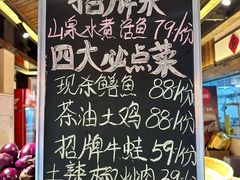 招牌菜
山泉水煮活鱼 79/份
四大必点菜
现杀鳝鱼 88/份
茶油土鸡 88/份
招牌牛蛙 59/份
土辣椒炒肉 39/份